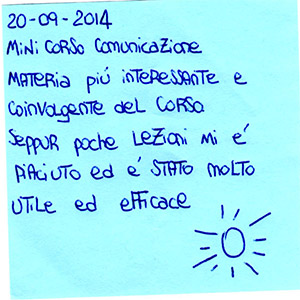 20-09-2014
Mini corso comunicazione
Materia più interessante e
coinvolgente del corso
Seppur poche lezioni mi é
piaciuto ed é stato molto
utile ed efficace